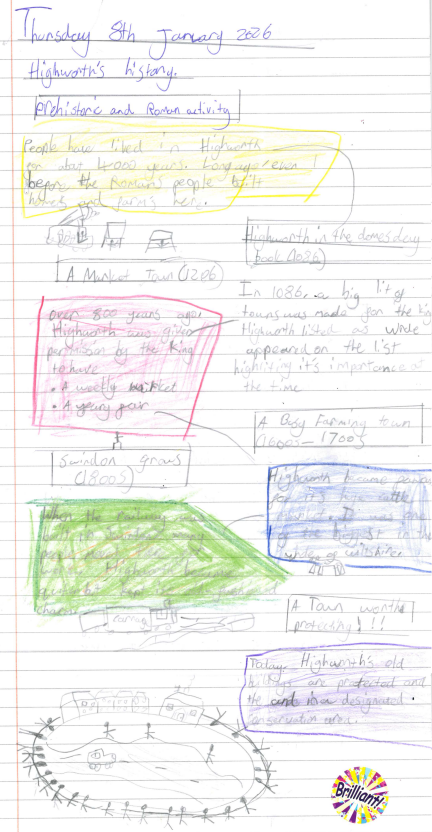 Thursday 8th January 2026
Highworth's history.
Prehistoric and Roman activity
People have lived in Highworth
for abat 4000 years. Long ago, even
before the Romans people built
homes and farms here.
Highworth in the domesday
book (1086)
A Market Town (1206)
In 1086, a big lit of
towns was made for the king
Highworth listed as
appeared on the list
it's importance at
the time
Over 800 years ago,
Highworth was given
permission by the King
to have
• A weekly market
• A yeary year
A Busy Farming town
(1600s - 1700s
Swindon grows
(1800s)
Highworth became
for it's huge cattle
market. It was
of the highest in the
of wiltshire.
When the railway was
built in Swindon many
people
Highworth became
quieter but kept its
charm
Carriag
A Town worth
protecting!!!
Today, Highworth's old
are protected and
the in a designated
conservation area.
Brilliant!